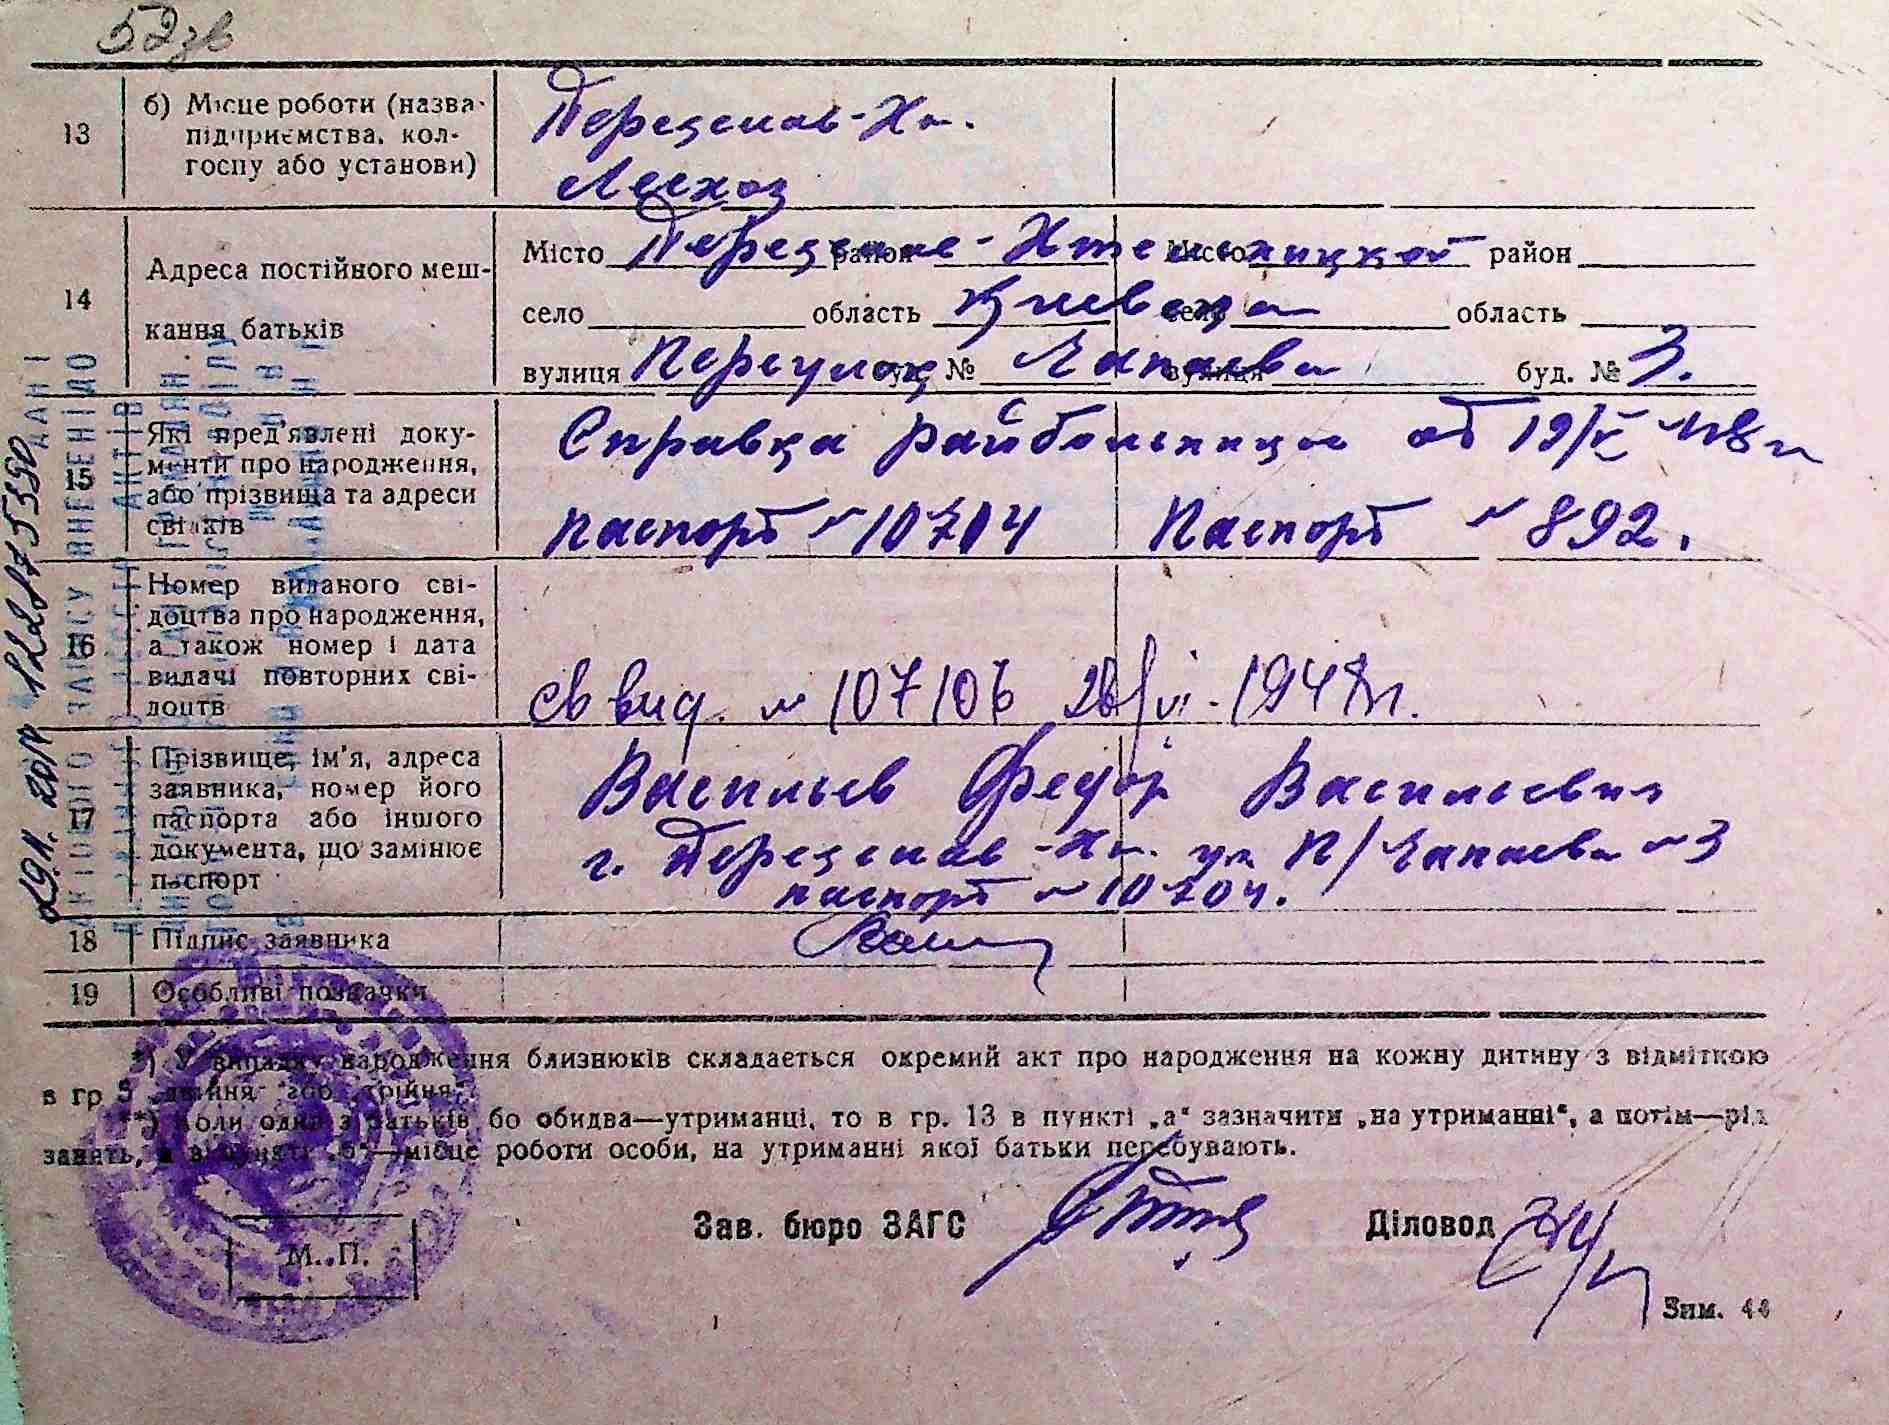 52зв
13
б) Місце роботи (назва
підприємства, кол-
госпу або установи)
Переяслав-Хм.
Лесхоз
14
Адреса постійного меш-
кання батьків
Місто Переяслав-Хмельницкой район Місто район
село область Киевская село область
вулиця Переулок буд. № Чапаева вулиця буд. № 3.
15
Які пред'явлені доку-
менти про народження,
або прізвища та адреси
свідків
Справка райбольницы от 19/V 48 г
Паспорт № 10704 Паспорт № 892.
16
Номер виданого сві-
доцтва про народження,
а також номер і дата
видачі повторних сві-
доцтв
св вид. № 107106 1948 г.
17
Прізвище, ім'я, адреса
заявника, номер його
паспорта або іншого
документа, що замінює
паспорт
Васильев Федор Васильевич
г. Переяслав-Хм. ул П/Чапаева № 3
паспорт № 10704.
18
Підпис заявника
19
Особливі позначки
*) У випадку народження близнюків складається окремий акт про народження на кожну дитину з відміткою
в гр 5 „двійня" або „трійня".
**) Коли один з батьків бо обидва—утриманці, то в гр. 13 в пункті „а" зазначити „на утриманні", а потім—рід
занять, а в пункті „б"—місце роботи особи, на утриманні якої батьки перебувають.
М. П.
Зав. бюро ЗАГС
Діловод
Зим. 44